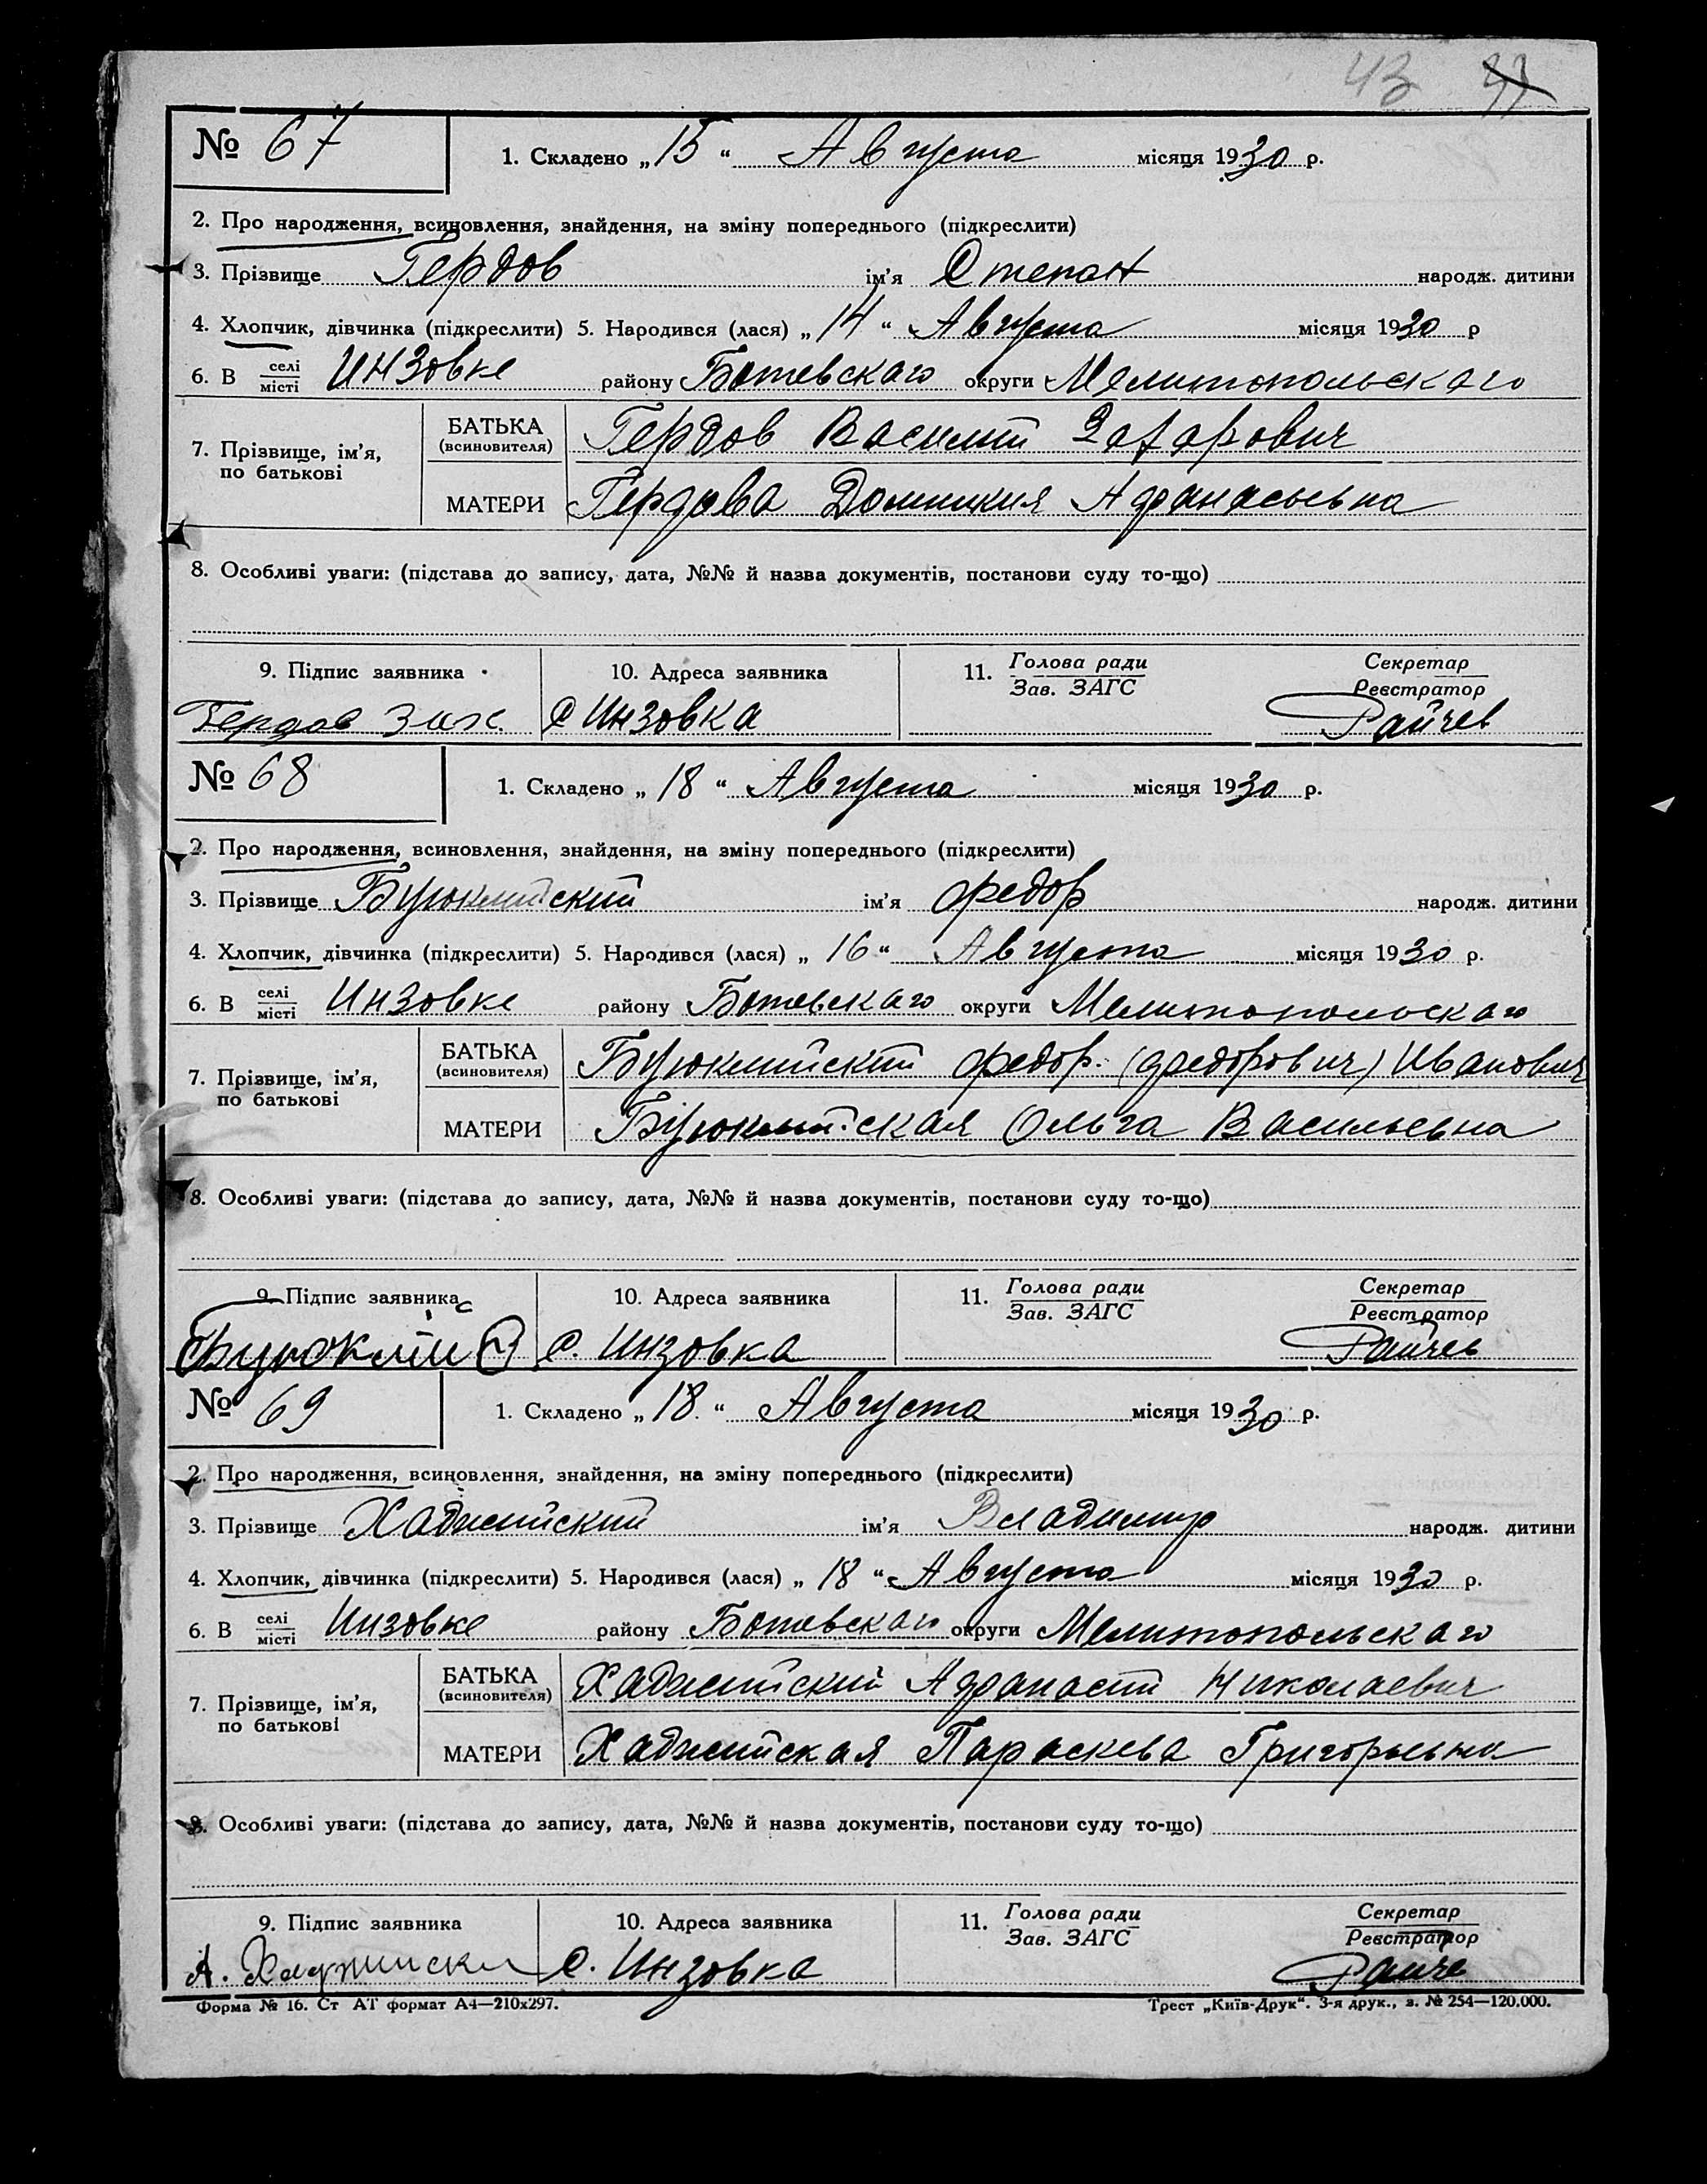 43 33
№ 67 1. Складено „ 15 “ Августа місяця 1930 р.
2. Про народження, всиновлення, знайдення, на зміну попереднього (підкреслити)
3. Прізвище Гердов ім’я Степан народж. дитини
4. Хлопчик, дівчинка (підкреслити) 5. Народився (лася) „ 14 “ Августа місяця 1930 р
6. В селі місті Инзовке району Ботевскаго округи Мелитопольскаго
7. Прізвище, ім’я, по батькові
БАТЬКА (всиновителя) Гердов Василий Захарович
МАТЕРИ Гердова Домникия Афанасьевна
8. Особливі уваги: (підстава до запису, дата, №№ й назва документів, постанови суду то-що)
9. Підпис заявника 10. Адреса заявника 11. Голова ради Зав. ЗАГС Секретар Реєстратор
Гердов Зах. С Инзовка Райчев
№ 68 1. Складено „ 18 “ Августа місяця 1930 р.
2. Про народження, всиновлення, знайдення, на зміну попереднього (підкреслити)
3. Прізвище Буюклийский ім’я Федор народж. дитини
4. Хлопчик, дівчинка (підкреслити) 5. Народився (лася) „ 16 “ Августа місяця 1930 р.
6. В селі місті Инзовке району Ботевскаго округи Мелитопольскаго
7. Прізвище, ім’я, по батькові
БАТЬКА (всиновителя) Буюклийский Федор. (Федорович) Иванович
МАТЕРИ Буюклийская Ольга Васильевна
8. Особливі уваги: (підстава до запису, дата, №№ й назва документів, постанови суду то-що)
9. Підпис заявника 10. Адреса заявника 11. Голова ради Зав. ЗАГС Секретар Реєстратор
Буюклий С. Инзовка Райчев
№ 69 1. Складено „ 18. “ Августа місяця 1930 р.
2. Про народження, всиновлення, знайдення, на зміну попереднього (підкреслити)
3. Прізвище Хаджийский ім’я Владимир народж. дитини
4. Хлопчик, дівчинка (підкреслити) 5. Народився (лася) „ 18 “ Августа місяця 1930 р.
6. В селі місті Инзовке району Ботевскаго округи Мелитопольскаго
7. Прізвище, ім’я, по батькові
БАТЬКА (всиновителя) Хаджийский Афанасий Николаевич
МАТЕРИ Хаджийская Параскева Григорьевна
8. Особливі уваги: (підстава до запису, дата, №№ й назва документів, постанови суду то-що)
9. Підпис заявника 10. Адреса заявника 11. Голова ради Зав. ЗАГС Секретар Реєстратор
А. Хаджийски С. Инзовка Райче
Форма № 16. Ст АТ формат А4—210х297. Трест „Київ-Друк“. 3-я друк., з. № 254—120.000.